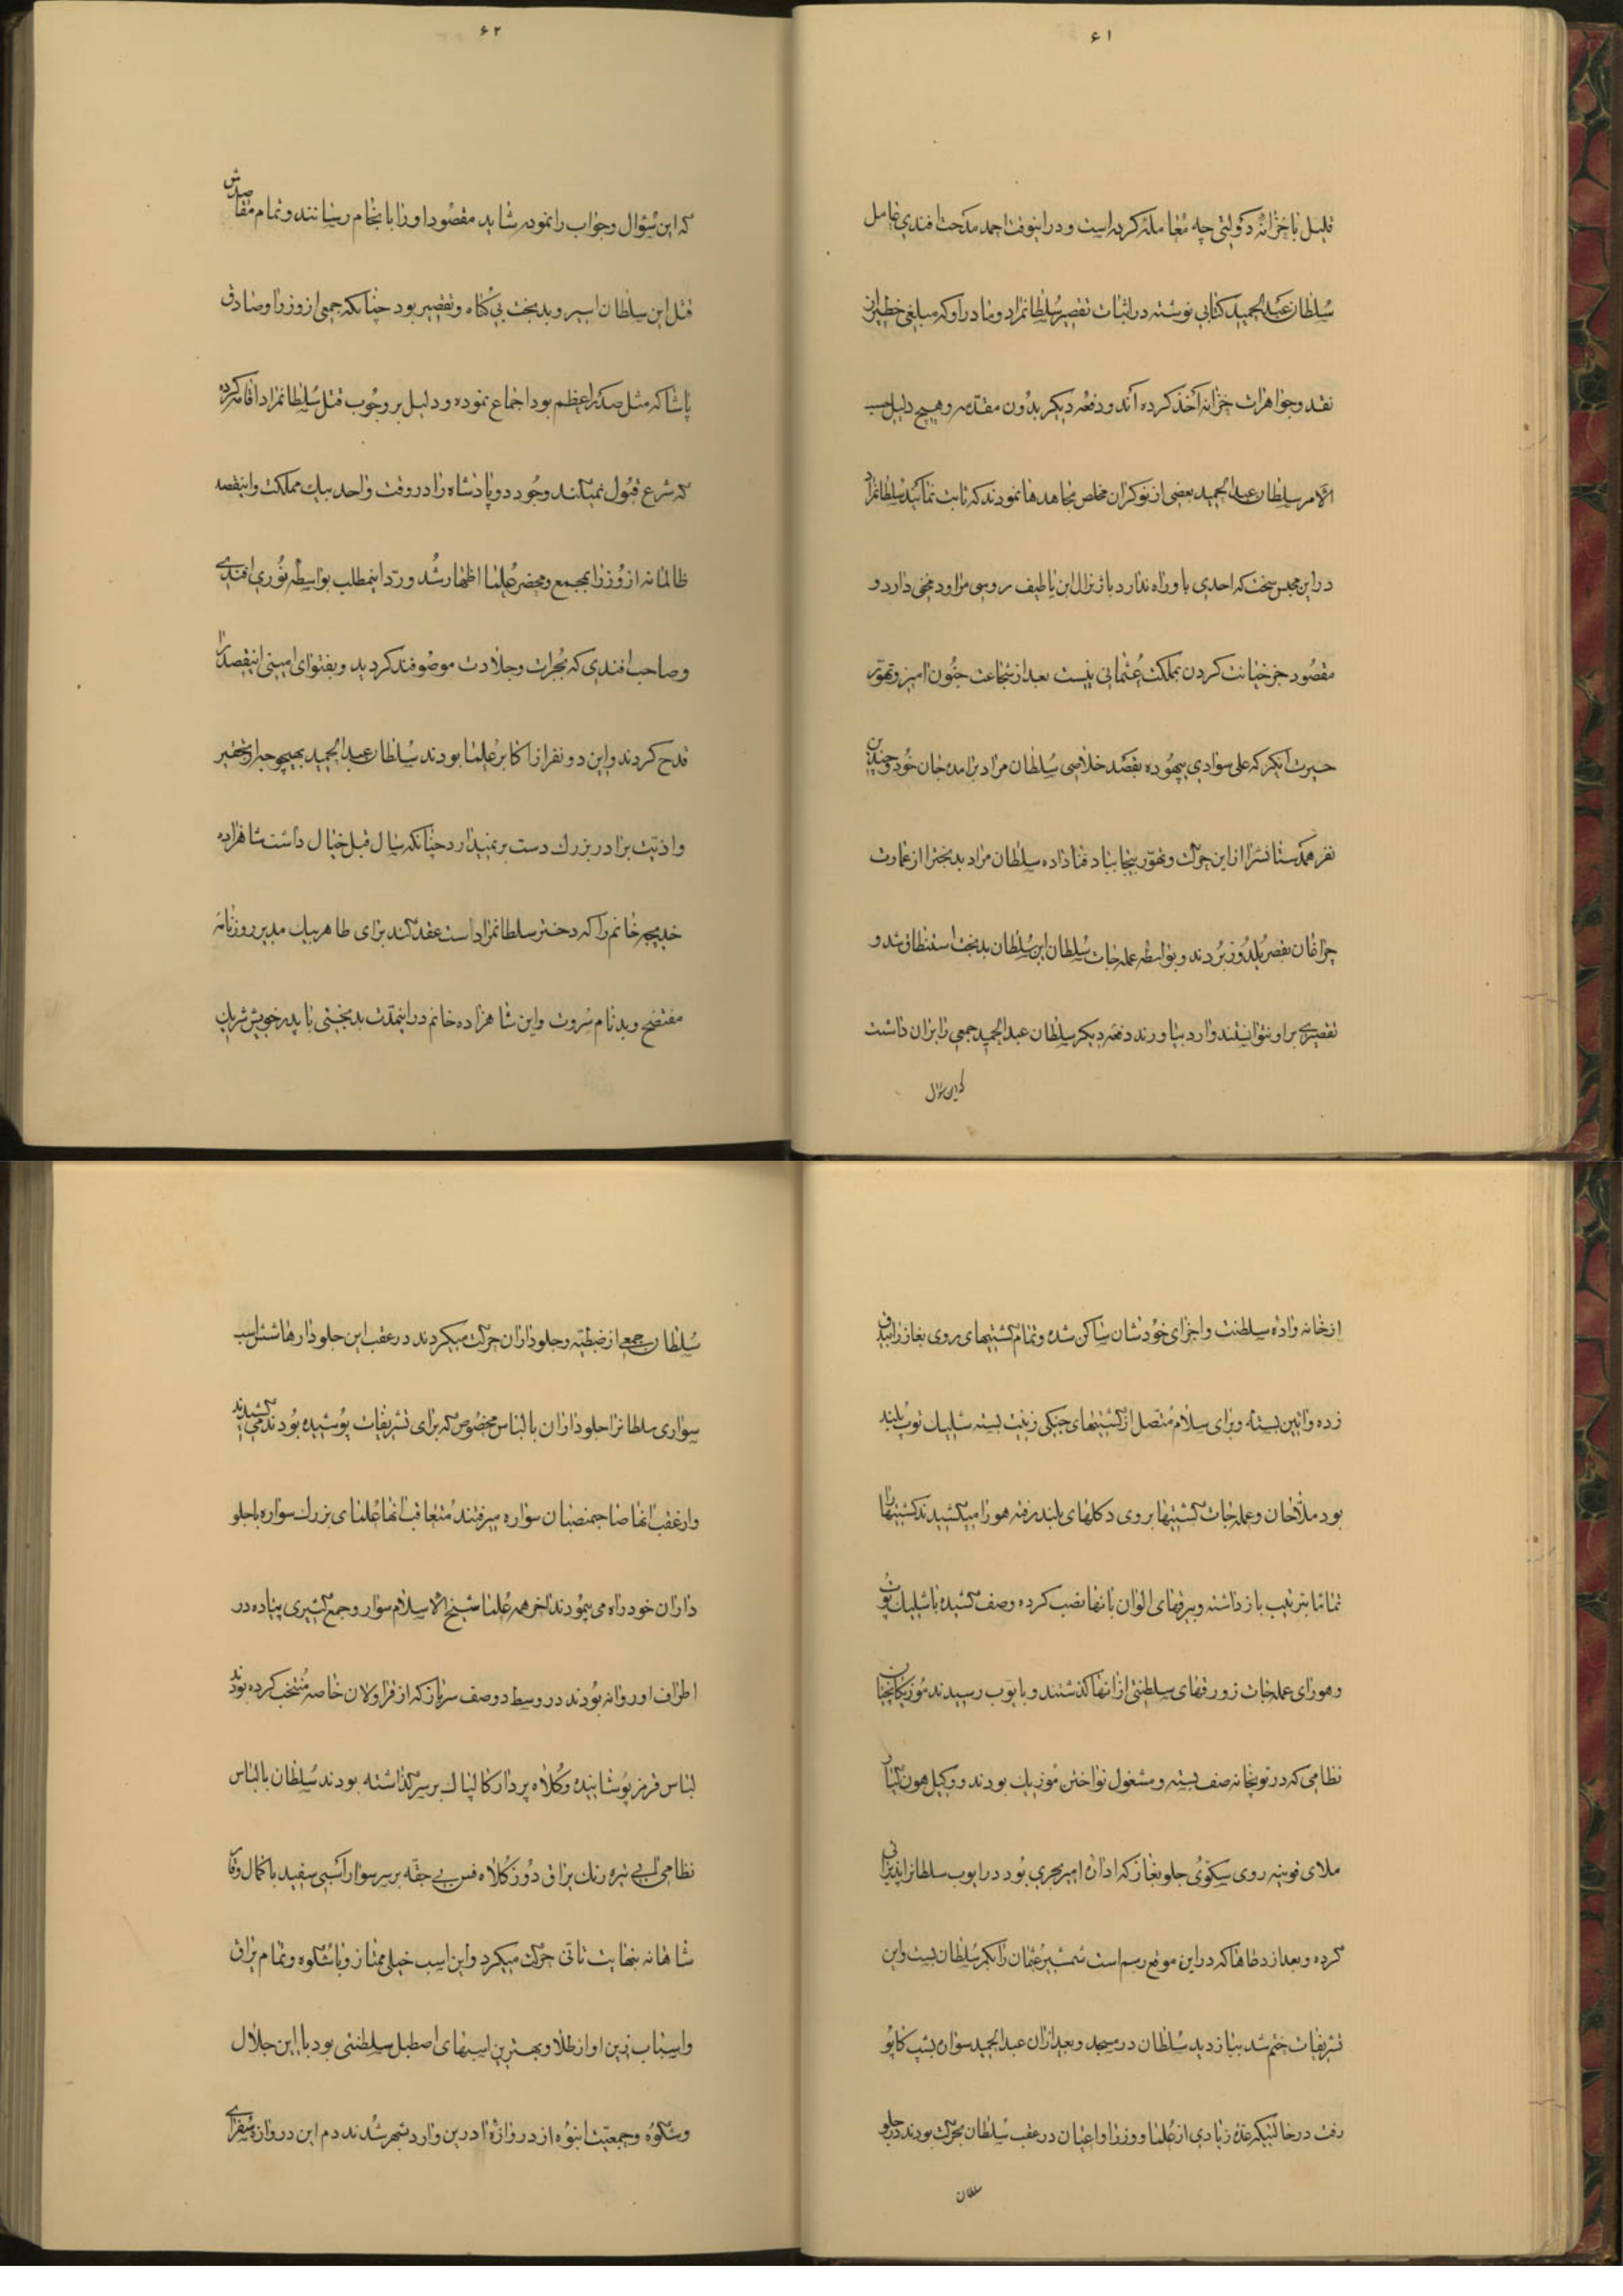 ۶۱
قلیل با خزانهٔ دولتی چه معامله کرده است و در اینوقت احمد مدحت افندی عامل
سلطان عبدالحمید کتابی نوشته در اثبات تقصیر سلطانمراد و مادر او که مبلغی خطیر از
نقد و جواهرات خزانه اخذ کرده‌اند و دفعه دیکر بدون مقدمه و هیچ دلیل حسب
الامر سلطان عبدالحمید بعضی از نوکران مخلص مجاهدها نمودند که ثابت نمایند سلطانمراد
در این محبس سخت که احدی باو راه ندارد با ژنرال ایناطیف روسی مراوده مخفی دارد و
مقصود جز خیانت کردن بمملکت عثمانی نیست بعد از شجاعت جنون امیز و تهور
حیرت انکیز که علی سوادی بیهوده بقصد خلاصی سلطان مراد برامده جان خود و چندین
نفر همدستانشرا از این حرکت و تهور بیجا بباد فنا داده سلطان مراد بدبخترا از عمارت
چراغان بقصر یلدوز بردند و بواسطه عمله‌جات سلطان این سلطان بدبخت استنطاق شد و
تقصیری براو نتوانستند وارد بیاورند دفعه دیکر سلطان عبدالحمید جمعی را بران داشت
که این سؤال
۶۲
که این سؤال و جواب را نموده شاید مقصود او را بانجام رسانند و تمام مقاصدش
قتل این سلطان اسیر و بدبخت بی‌کناه و تقصیر بود چنانکه جمعی از وزرا و صادق
پاشا که مثل صدراعظم بود اجماع نموده و دلیل بر وجوب قتل سلطانمراد اقامه کرده
که شرع قبول نمیکند وجود دو پادشاه را در وقت واحد بیک مملکت و اینقصد
ظالمانه از وزرا بمجمع و محضر علما اظهار شد و رد اینمطلب بواسطه نوری افندی
و صاحب افندی که بجرات و جلادت موصوفند کردید و بفتوای امینی اینقصد را
قدح کردند و این دو نفر از اکابر علما بودند سلطان عبدالحمید بهیچوجه از تحقیر
و اذیت برادر بزرک دست برنمیدارد چنانکه سال قبل خیال داشت شاهزاده
خدیجه خانم را که دختر سلطانمراد است عقد کند برای طاهر بیک مدیر روزنامه
مفتضح و بدنام ثروت و این شاهزاده خانم در اینمدت بدبختی با پدر خویش شریک
از خانه‌واده سلطنت و اجزای خودشان ساکن شده و تمام کشتیهای روی بغاز را بیدق
زده و ایین بسته و برای سلام متصل از کشتیهای جنکی زینت بسته شلیک توپ بلند
بود ملاحان و عمله‌جات کشتیها بروی دکلهای بلند رفته هورا میکشیدند کشتیها را
تماما بترتیب بازداشته و بیرقهای الوان بانها نصب کرده وصف کشیده با شلیک توپ
و هورای عمله‌جات زورقهای سلطنتی از انها کذشتند و بایوب رسیدند موزیکانچیان
نظامی که در توپخانه صف بسته و مشغول نواختن موزیک بودند و وکیل هونکیار
ملای قونیه روی سکوی جلو بغاز که اداره امیر بحری بود در ایوب سلطانرا پذیرائی
کرده و بعد از دعاها که در این موقع رسم است شمشیر عثمان را بکمر سلطان بست و این
تشریفات ختم شد ببازدید سلطان در مسجد و بعد ازان عبدالحمید سواره بتپ کاپو
رفت در حالتیکه عدهٔ زیادی از علما و وزرا و اعیان در عقب سلطان بحرکت بودند در جلو
سلطان
سلطان جمعی از ضبطیه و جلوداران حرکت میکردند در عقب این جلودارها شش اسب
سواری سلطانرا جلوداران با لباس مخصوص که برای تشریفات پوشیده بودند می‌کشیدند
و از عقب انها صاحبمنصبان سواره میرفتند متعاقب انها علمای بزرک سواره با جلو
داران خود راه می‌پیمودند اخر همه علما شیخ‌الاسلام سوار و جمع کثیری پیاده در
اطراف او روانه بودند در وسط دو صف سرباز که از قراولان خاصه منتخب کرده بودند
لباس قرمز پوشانیده و کلاه پردار کالپاک بر سر کذاشته بودند سلطان با لباس
نظامی ابی تیره رنک یراق دوز کلاه فس بی جقه بر سر سوار اسبی سفید با کمال وقار
شاهانه بنهایت تانی حرکت میکرد و این اسب خیلی ممتاز و با شکوه و تمام یراق
و اسباب زین او از طلا و بهترین اسبهای اصطبل سلطنتی بود با این جلال
و شکوه و جمعیت انبوه از دروازهٔ ادرین وارد شهر شدند دم این دروازه سفرای